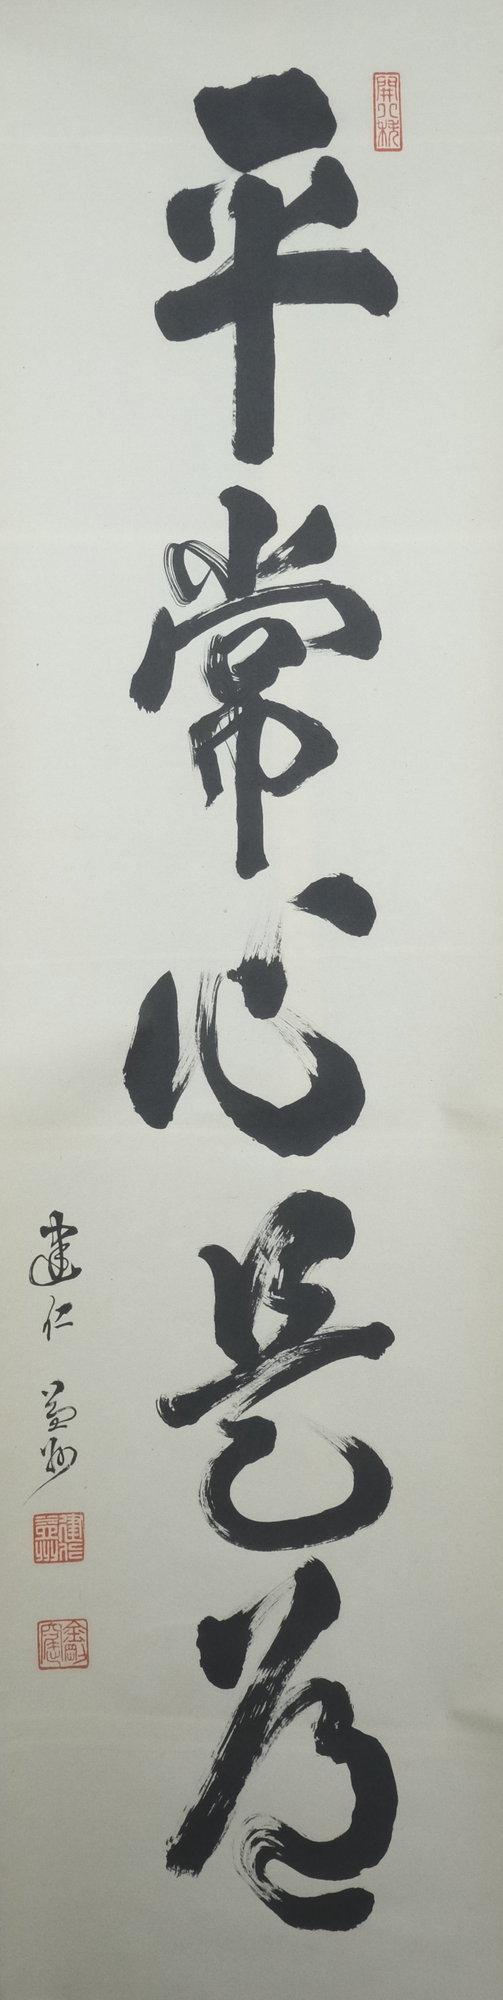 平常心是道
建仁 益州